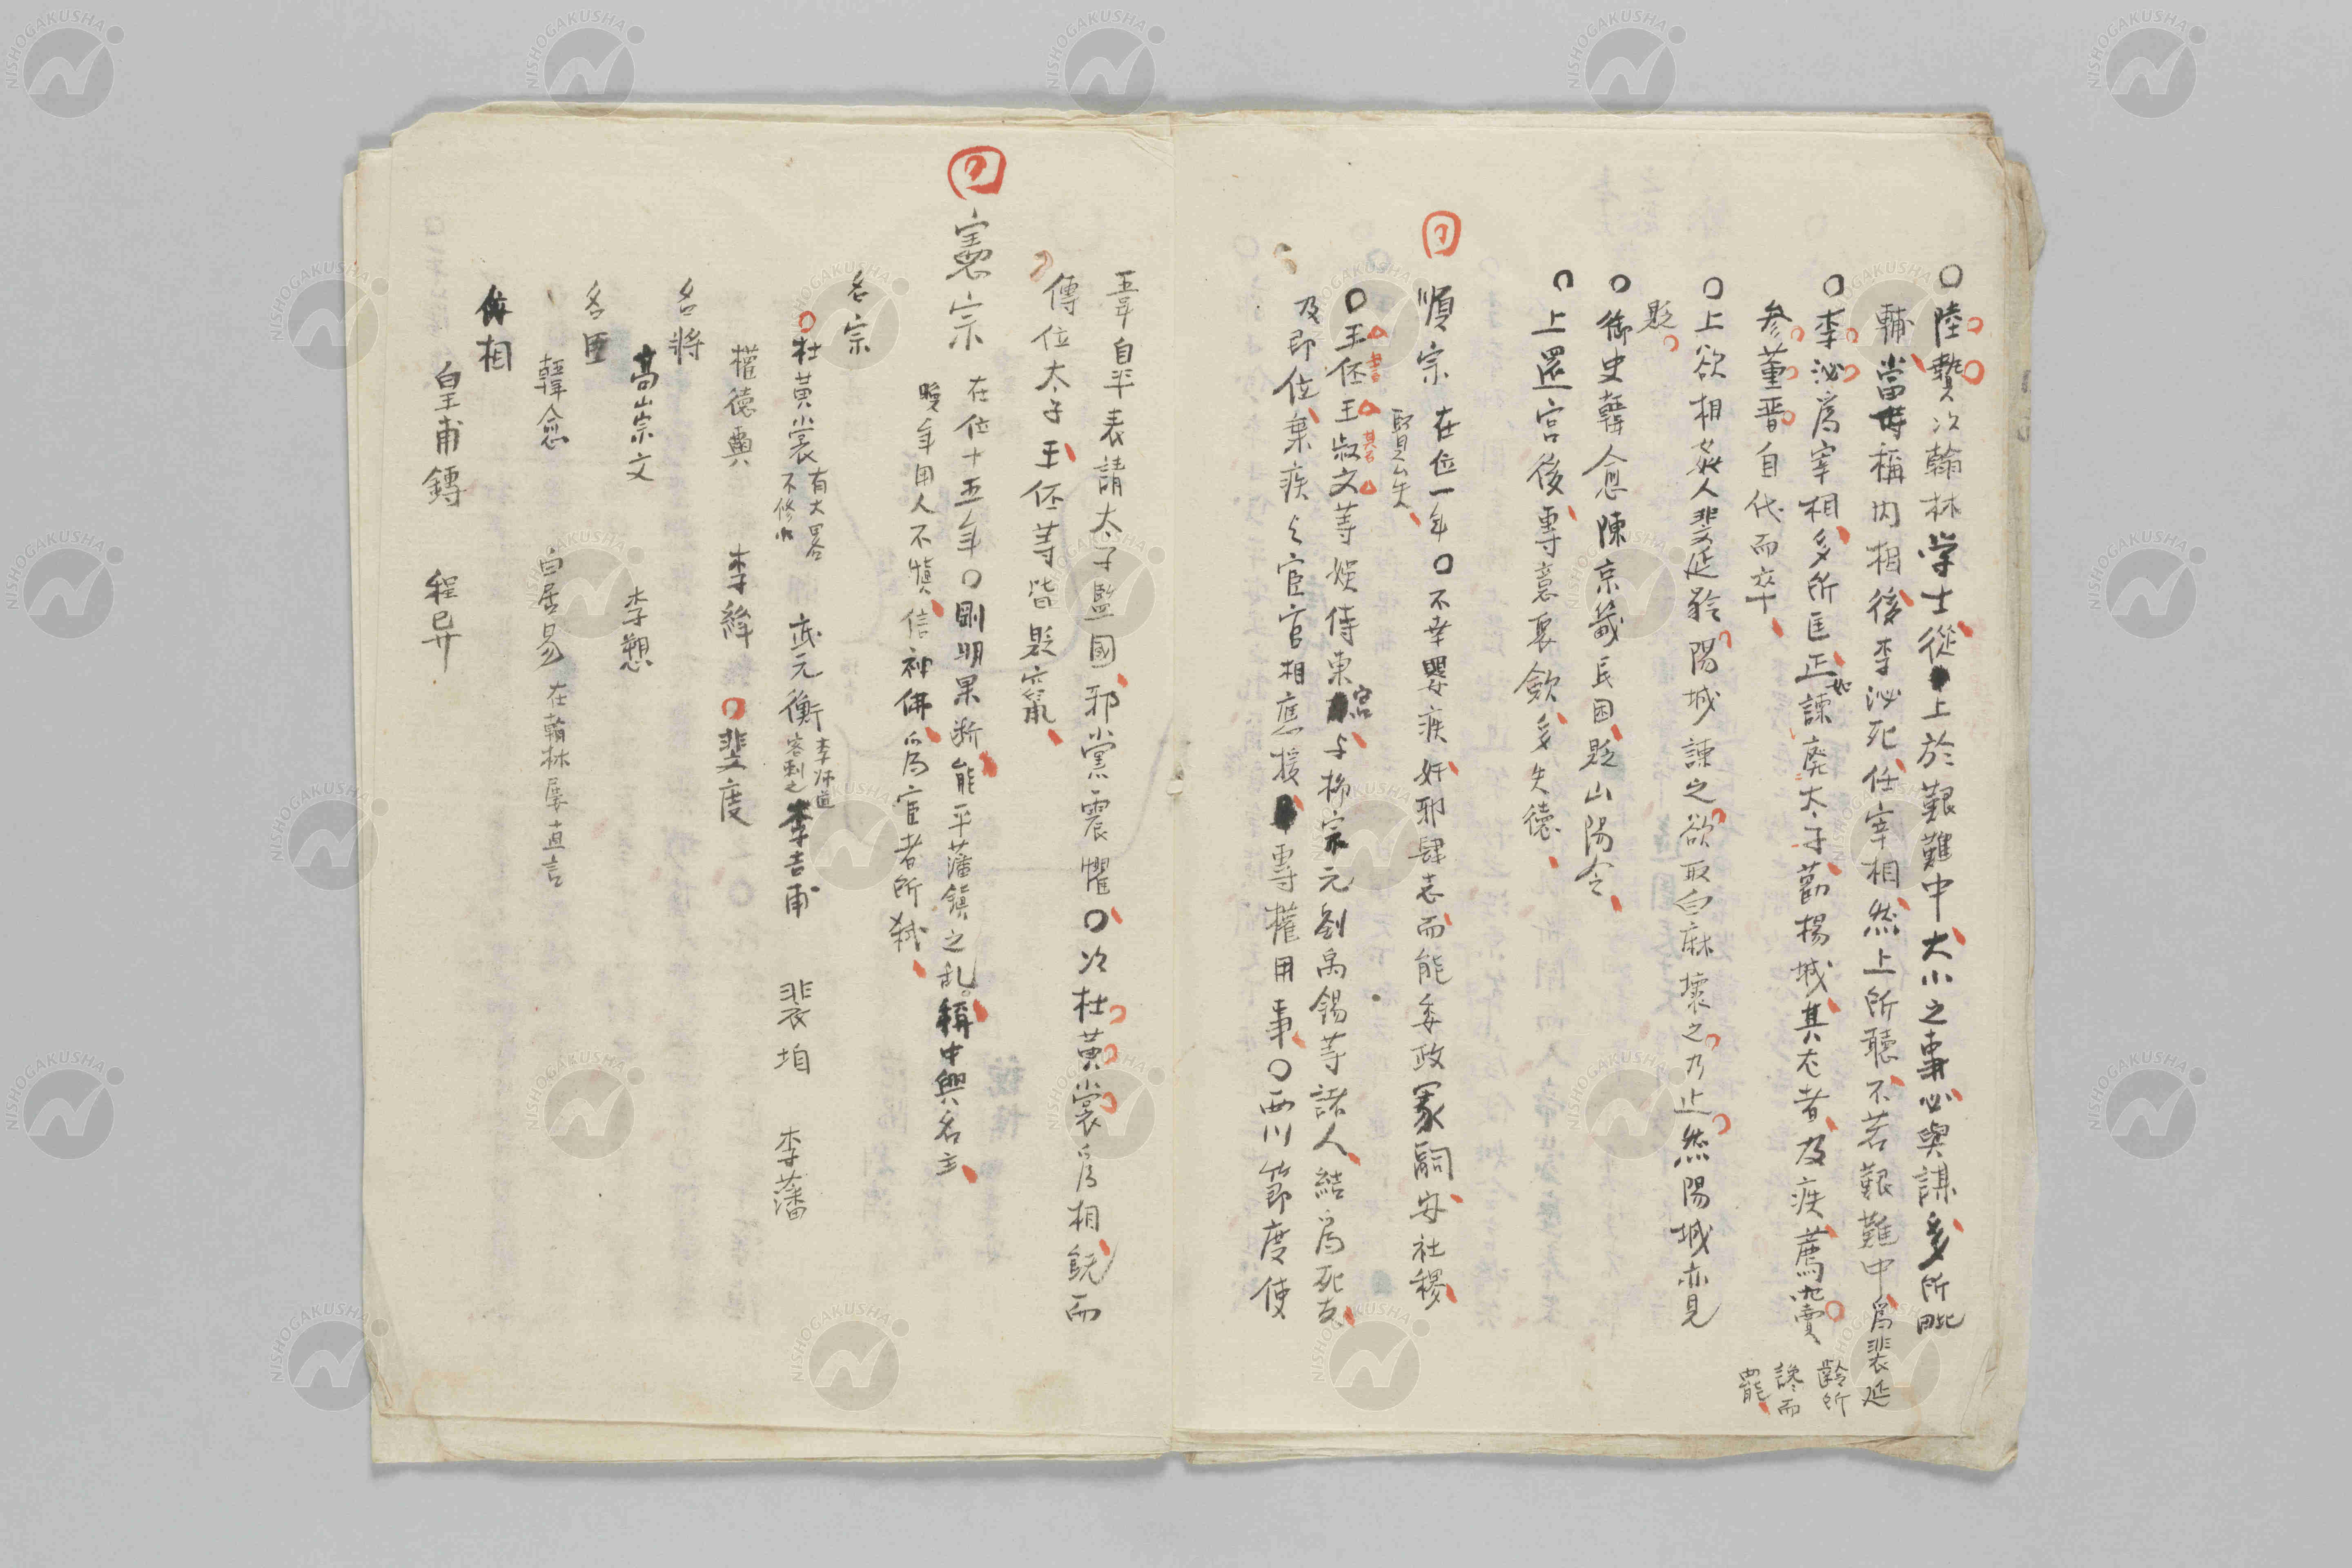 〇陸贄次翰林学士從上於艱難中大小之事必與謀多所毗
輔當時稱内相後李泌死任宰相然上所聽不若艱難中爲裴延
齢所
讒而
罷
〇李泌爲宰相多所匡正如諫廃太子勸楊城其尤者及疾薦竇
参董晋自代而卒
〇上欲相姦人裴延齡陽城諫之欲取白麻壞之乃止然陽城亦見
貶
〇御史韓愈陳京畿民困貶山陽令
〇上還宮後専意裒斂多失徳
順宗 在位一年〇不幸嬰疾奸邪肆志而能委政冢嗣安社稷
賢乎矣
〇王伾王叔文等娯侍東宮与柳宗元劉禹錫等諸人結爲死友
書
其名
及即位寢疾与宦官相應援專權用事〇西川節度使
韋自平表請太子監國邪黨震懼〇次杜黄裳爲相既而
傳位太子王伾等皆貶竄
憲宗 在位十五年〇剛明果断能平藩鎮之乱稱中興名主
晩年用人不愼信神佛爲宦者所弑
名宗
〇杜黄裳 有大畧
不修小
武元衡 李師道
客刺之
李吉甫 裴垍 李藩
權德輿 李絳 〇裴度
名將
高崇文 李愬
名臣
韓愈 白居易 在翰林屡直言
佞相
皇甫鎛 程异
NISHOGAKUSHA